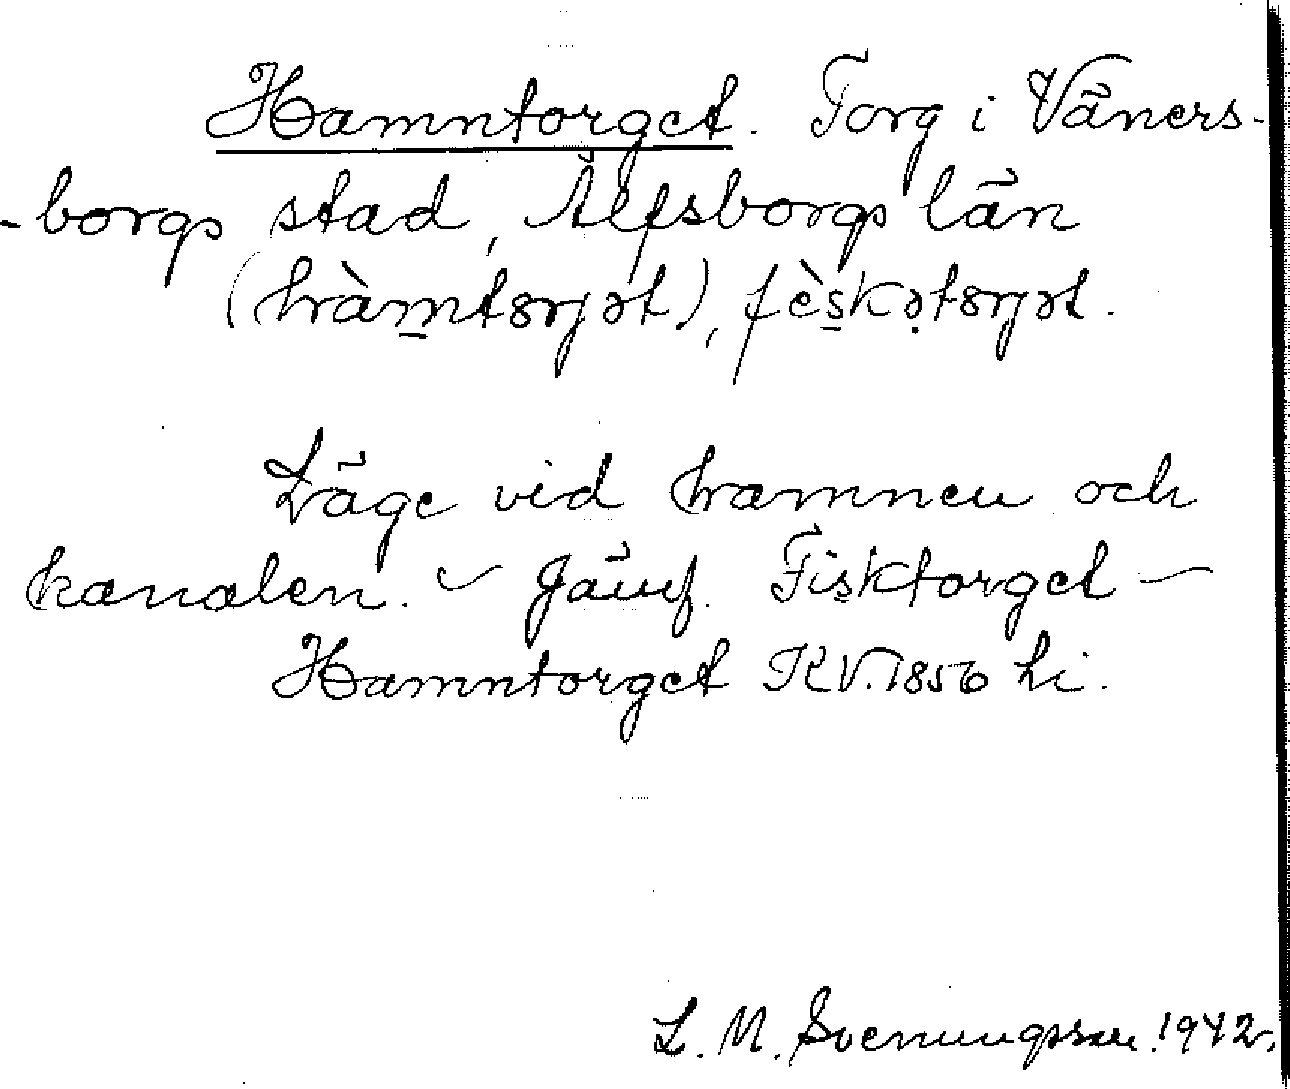 Hamntorget. Torg i Väners-
-borgs stad, Älfsborgs län
(hàm̲tɤrjət), fès̲kətɤrjət.
Läge vid hamnen och
kanalen. ‿ Jämf. Fisktorget —
Hamntorget KV. 1856 Li.
L. M. Svenungsson. 1942.